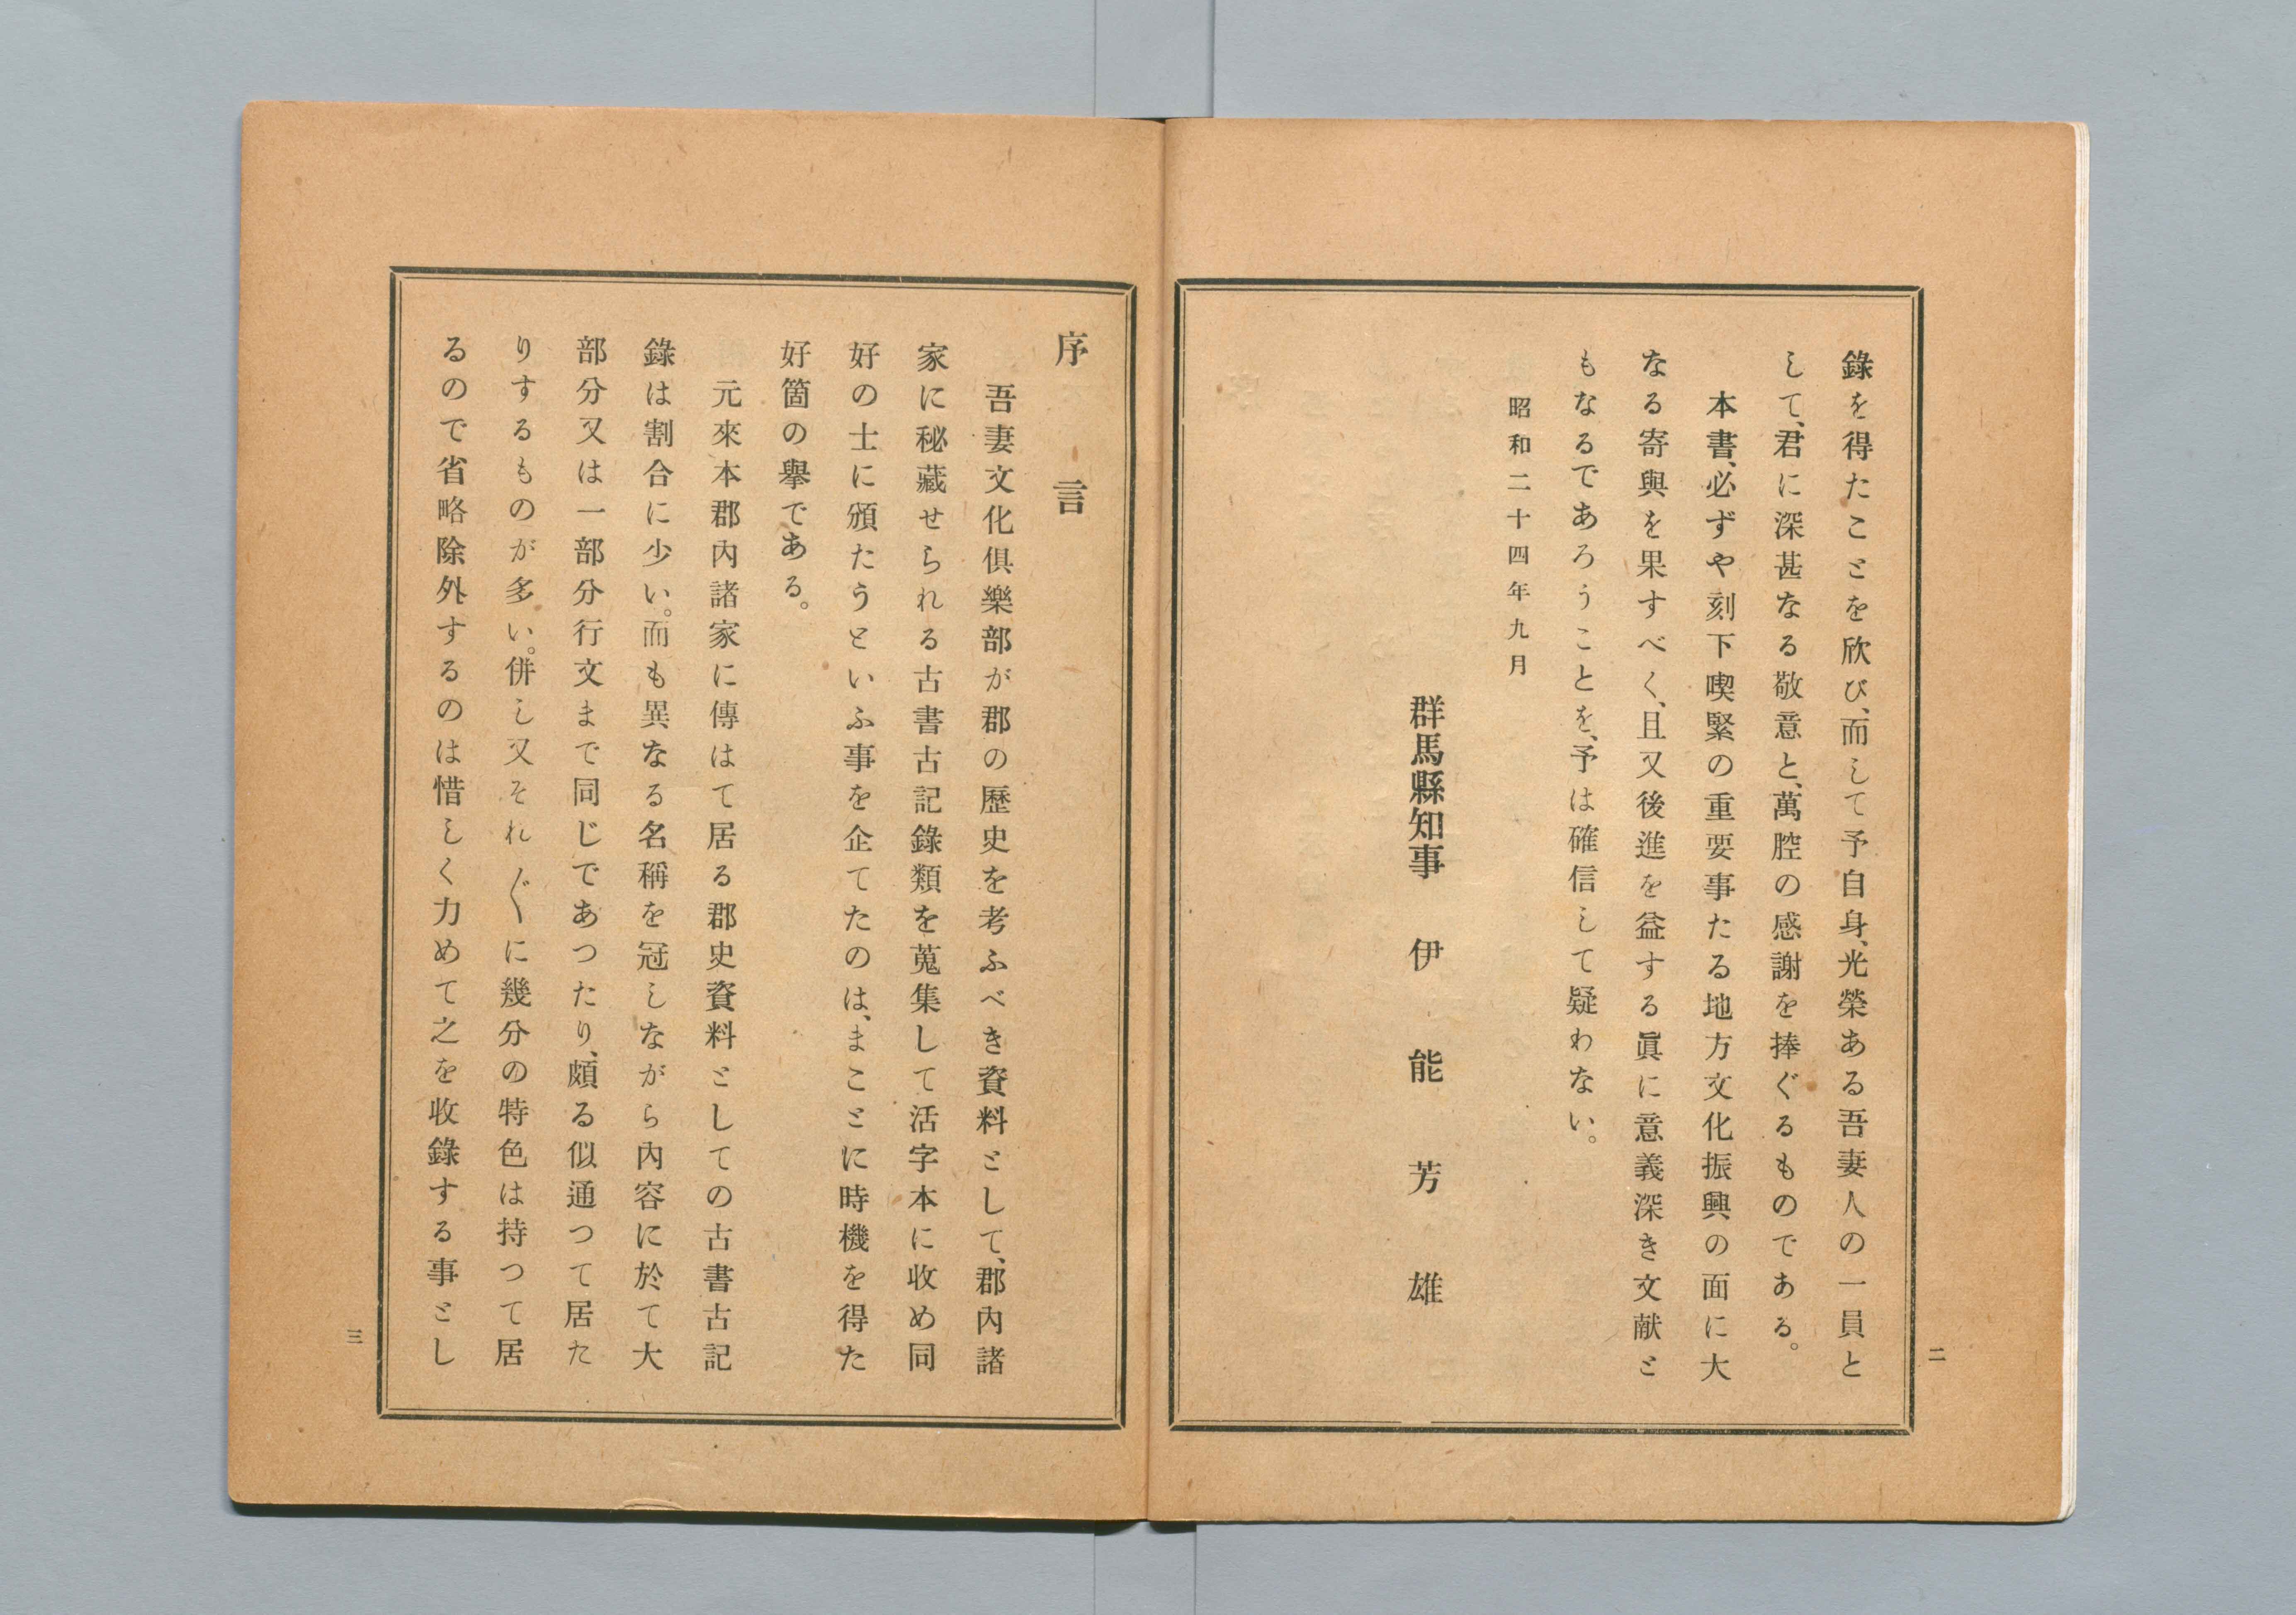 錄を得たことを欣び、而して予自身、光榮ある吾妻人の一員と
して、君に深甚なる敬意と、萬腔の感謝を捧ぐるものである。
本書、必ずや刻下喫緊の重要事たる地方文化振興の面に大
なる寄與を果すべく、且又後進を益する眞に意義深き文献と
もなるであろうことを、予は確信して疑わない。
昭和二十四年九月
群馬縣知事 伊能芳雄
二
序言
吾妻文化倶樂部が郡の歷史を考ふべき資料として、郡內諸
家に秘藏せられる古書古記錄類を蒐集して活字本に收め同
好の士に頒たうといふ事を企てたのは、まことに時機を得た
好箇の擧である。
元來本郡內諸家に傳はて居る郡史資料としての古書古記
錄は割合に少い。而も異なる名稱を冠しながら內容に於て大
部分又は一部分行文まで同じであつたり、頗る似通つて居た
りするものが多い。併し又それ〴〵に幾分の特色は持つて居
るので省略除外するのは惜しく力めて之を收錄する事とし
三